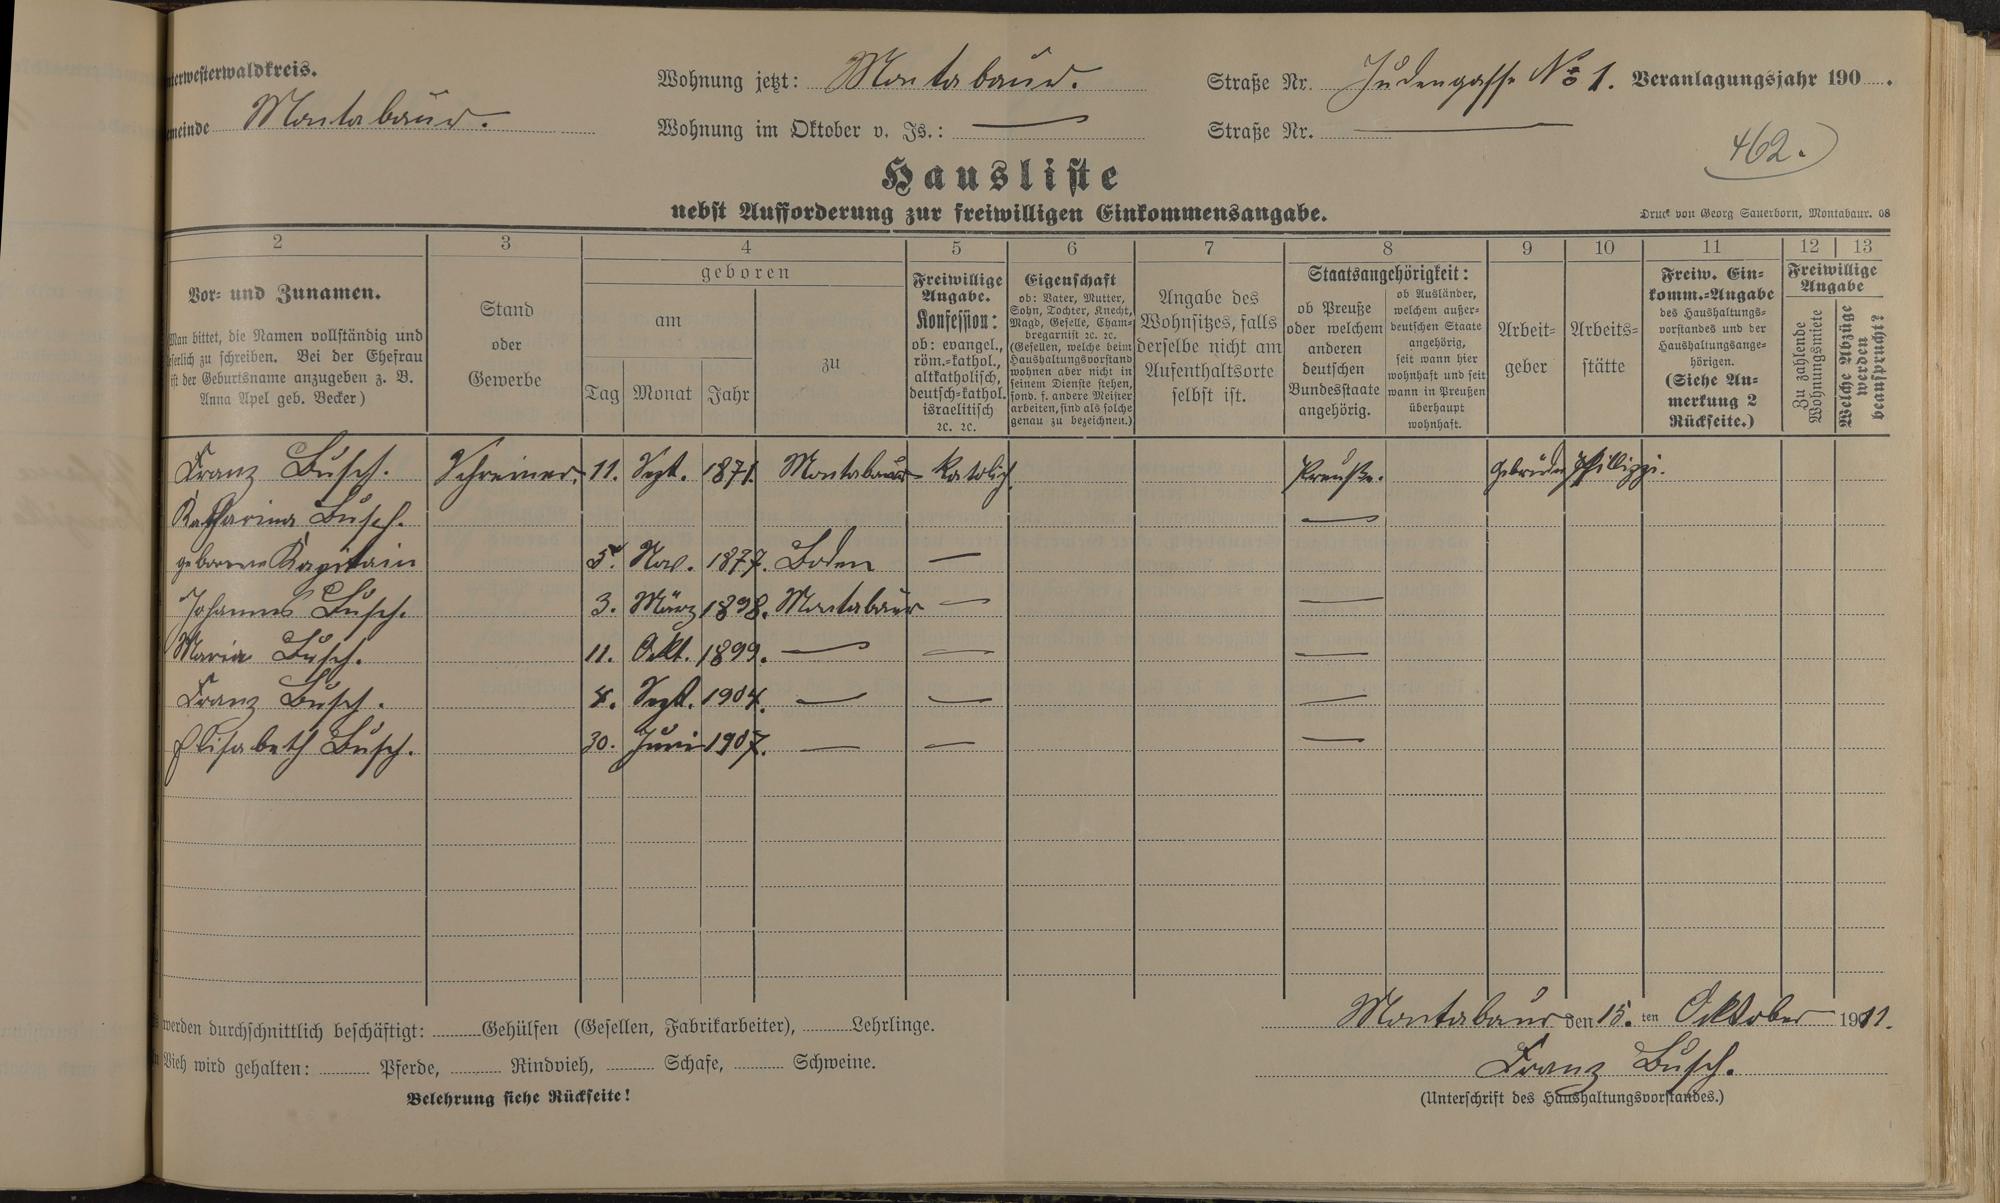 nterwesterwaldkreis.
Wohnung jetzt: Montabaur.
Straße Nr. Judengasse No 1. Veranlagungsjahr 190 .
emeinde Montabaur.
Wohnung im Oktober v. Js.: —
Straße Nr. —
462.
Hausliste
nebst Aufforderung zur freiwilligen Einkommensangabe.
Druck von Georg Sauerborn, Montabaur. 08
2 3 4 5 6 7 8 9 10 11 12 13
Vor- und Zunamen.
Man bittet, die Namen vollständig und
leserlich zu schreiben. Bei der Ehefrau
ist der Geburtsname anzugeben z. B.
Anna Apel geb. Becker)
Stand
oder
Gewerbe
geboren
am
Tag Monat Jahr
zu
Freiwillige
Angabe.
Konfession:
ob: evangel.,
röm.-kathol.,
altkatholisch,
deutsch-kathol.
israelitisch
ꝛc. ꝛc.
Eigenschaft
ob: Vater, Mutter,
Sohn, Tochter, Knecht,
Magd, Geselle, Cham-
bregarnist ꝛc. ꝛc.
(Gesellen, welche beim
Haushaltungsvorstand
wohnen aber nicht in
seinem Dienste stehen,
sond. f. andere Meister
arbeiten, sind als solche
genau zu bezeichnen.)
Angabe des
Wohnsitzes, falls
derselbe nicht am
Aufenthaltsorte
selbst ist.
Staatsangehörigkeit:
ob Preuße
oder welchem
anderen
deutschen
Bundesstaate
angehörig.
ob Ausländer,
welchem außer-
deutschen Staate
angehörig,
seit wann hier
wohnhaft und seit
wann in Preußen
überhaupt
wohnhaft.
Arbeit-
geber
Arbeits-
stätte
Freiw. Ein-
komm.-Angabe
des Haushaltungs-
vorstandes und der
Haushaltungsange-
hörigen.
(Siehe An-
merkung 2
Rückseite.)
Freiwillige
Angabe
Zu zahlende
Wohnungsmiete
Welche Abzüge
werden
beansprucht?
Franz Busch. Schreiner. 11. Sept. 1871. Montabaur katolich. Preuße. Gebrüder Phillippi.
Katharina Busch. —
geborene Kapitain 5. Nov. 1877. Boden —
Johannes Busch. 3. März 1898. Montabaur — —
Maria Busch. 11. Okt. 1899. — — —
Franz Busch. 4. Sept. 1904. — — —
Elisabeth Busch. 30. Juni 1907. — — —
werden durchschnittlich beschäftigt: Gehülfen (Gesellen, Fabrikarbeiter), Lehrlinge.
Montabaur den 15. ten Oktober 1911.
Vieh wird gehalten: Pferde, Rindvieh, Schafe, Schweine.
Franz Busch.
Belehrung siehe Rückseite!
(Unterschrift des Haushaltungsvorstandes.)